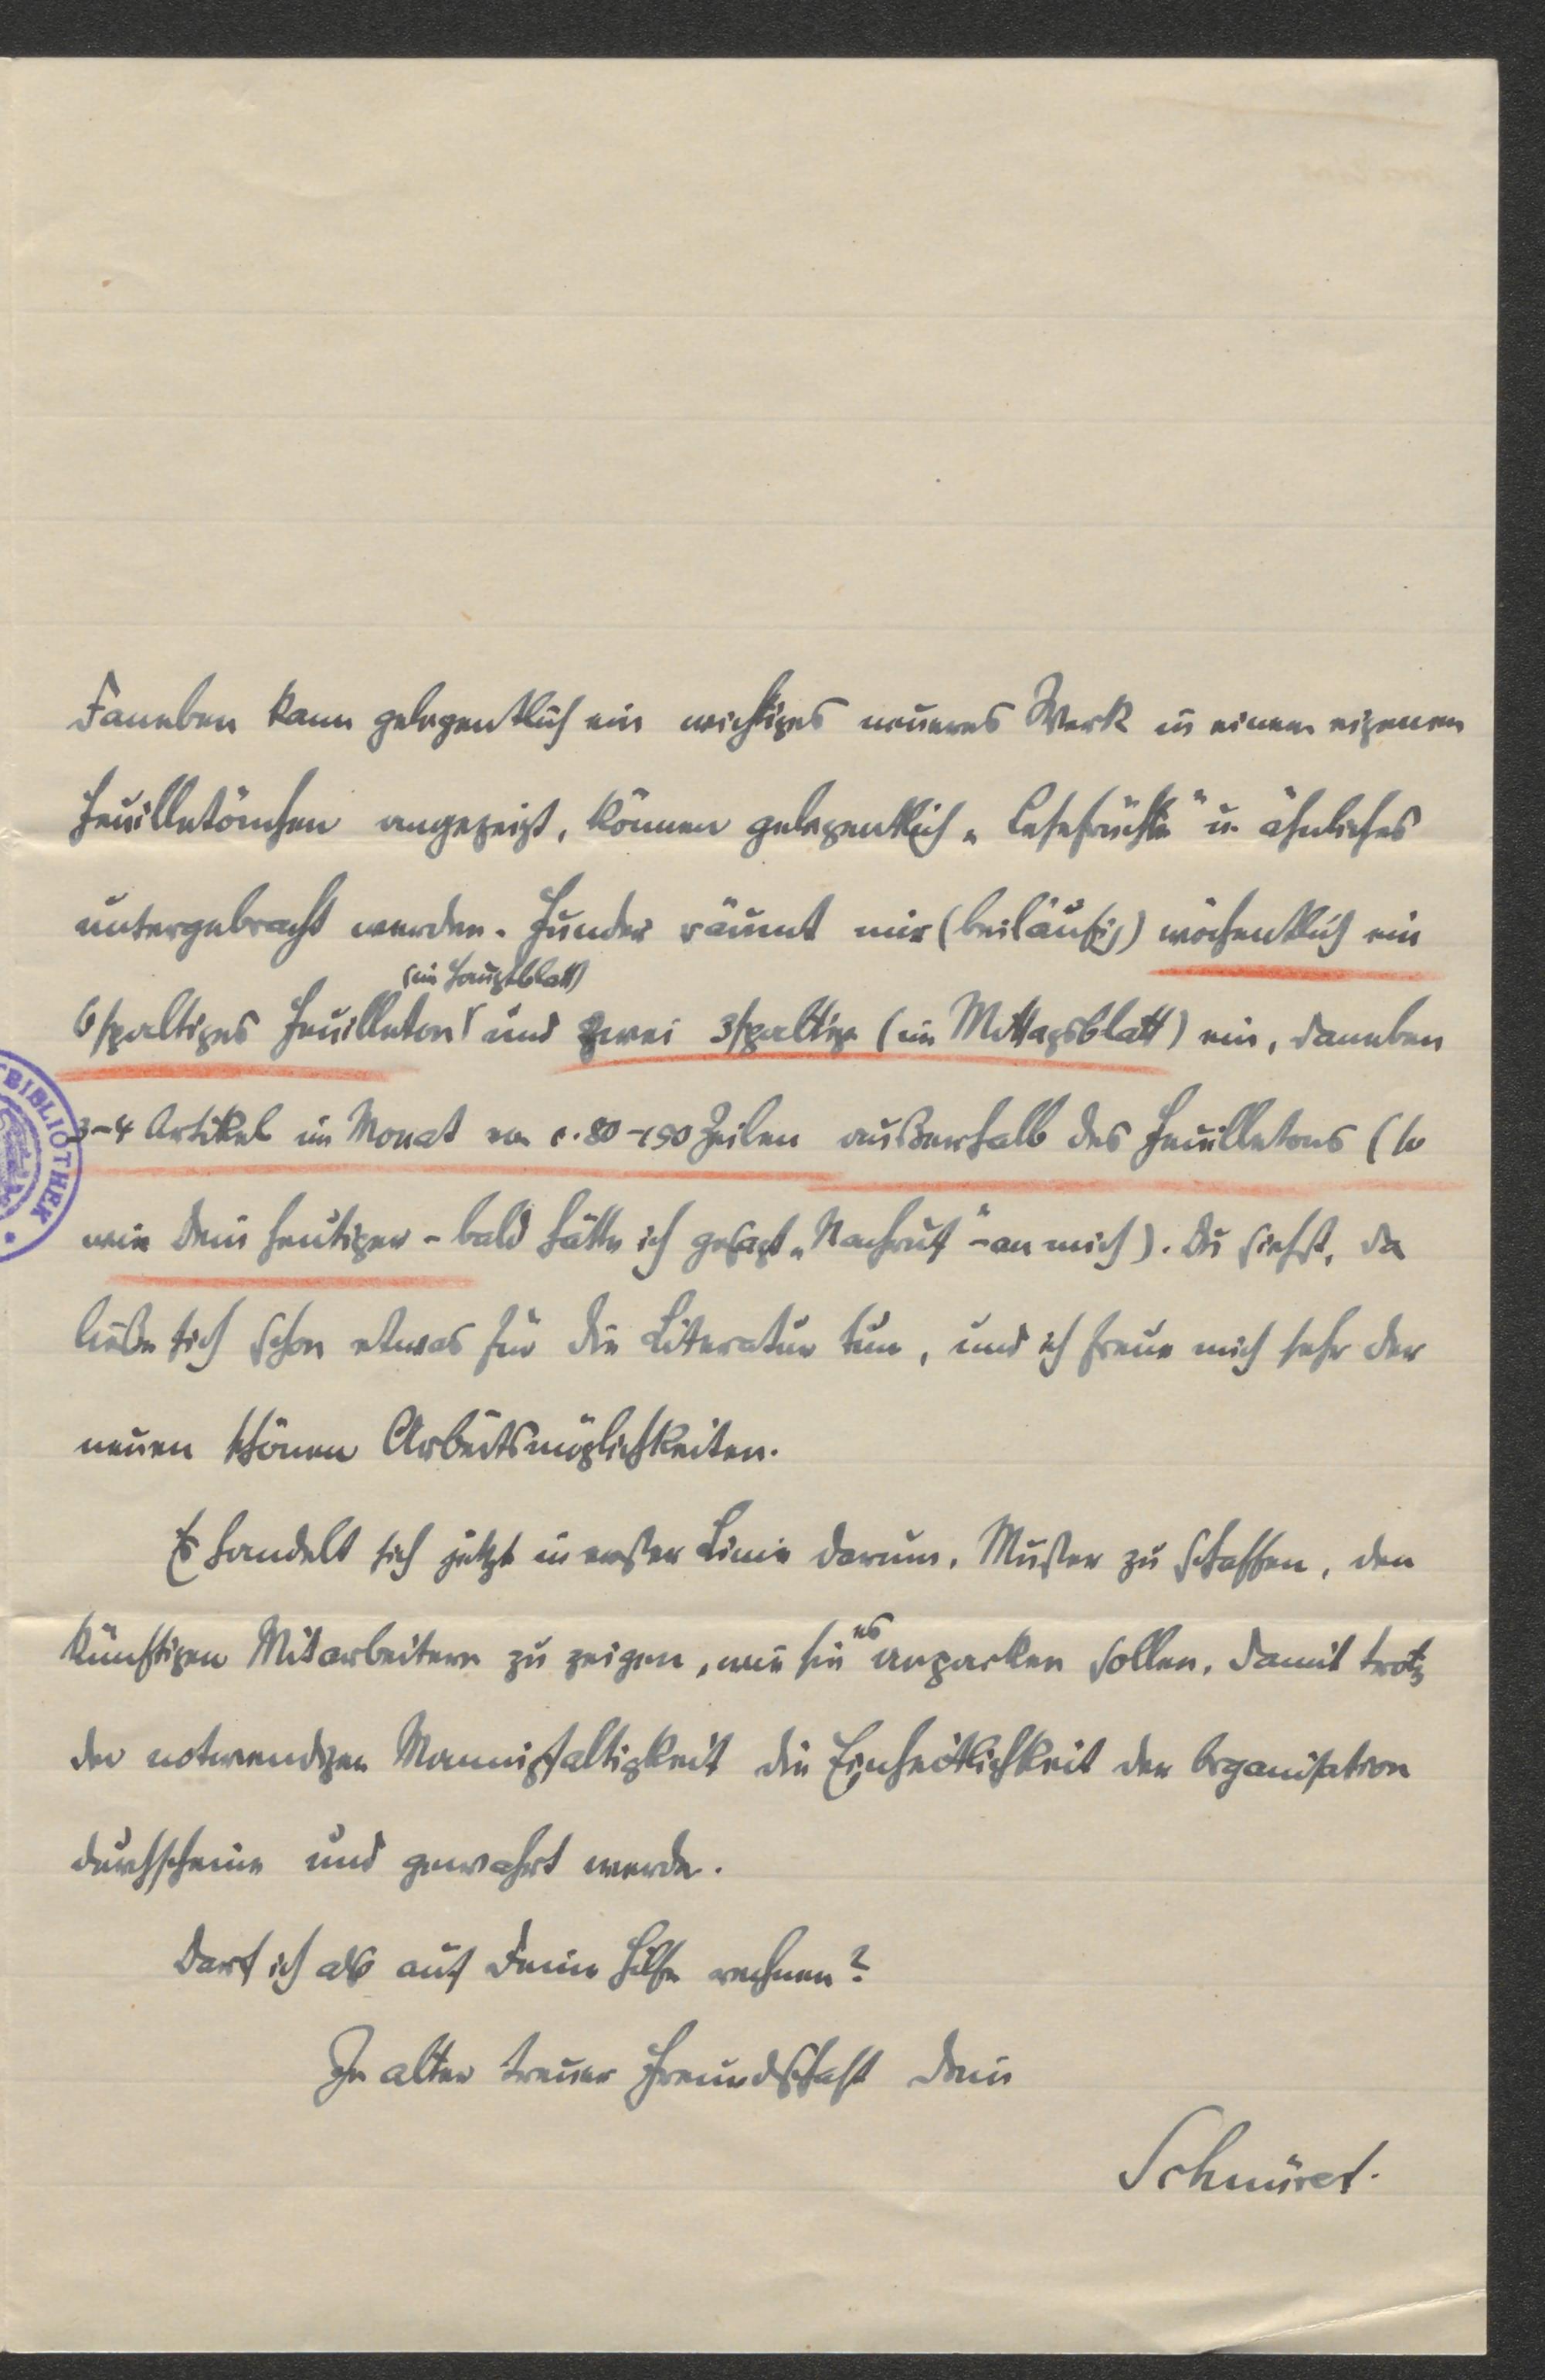 Daneben kann gelegentlich ein wichtiges neueres Werk in einem eigenen
Feuilletönchen angezeigt, können gelegentlich „Lesefrüchte" u. ähnliches
untergebracht werden. Funder räumt mir (beiläufig) wöchentlich ein
(im Hauptblatt)
6spaltiges Feuilleton und zwei 3spaltige (im Mittagsblatt) ein, daneben
3-4 Artikel im Monat von c. 80-150 Zeilen außerhalb des Feuilletons (so
wie Dein heutiger - bald hätte ich gesagt „Nachruf" - an mich). Du siehst, da
ließe sich schon etwas für die Literatur tun, und ich freue mich sehr der
neuen schönen Arbeitsmöglichkeiten.
Es handelt sich jetzt in erster Linie darum, Muster zu schaffen, den
es
künftigen Mitarbeitern zu zeigen, wie sie anpacken sollen, damit trotz
der notwendigen Mannigfaltigkeit die Einheitlichkeit der Organisation
durchscheine und gewahrt werde.
Darf ich also auf Deine Hilfe rechnen?
In alter treuer Freundschaft Dein
Schnürer.
BIBLIOTHEK